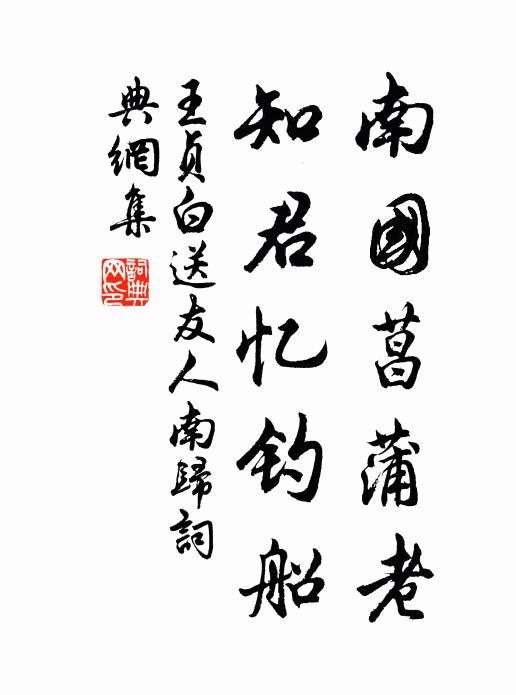 南國菖蒲老
知君忆钓船
王貞白送友人南歸詞
典網集
詞典
网印